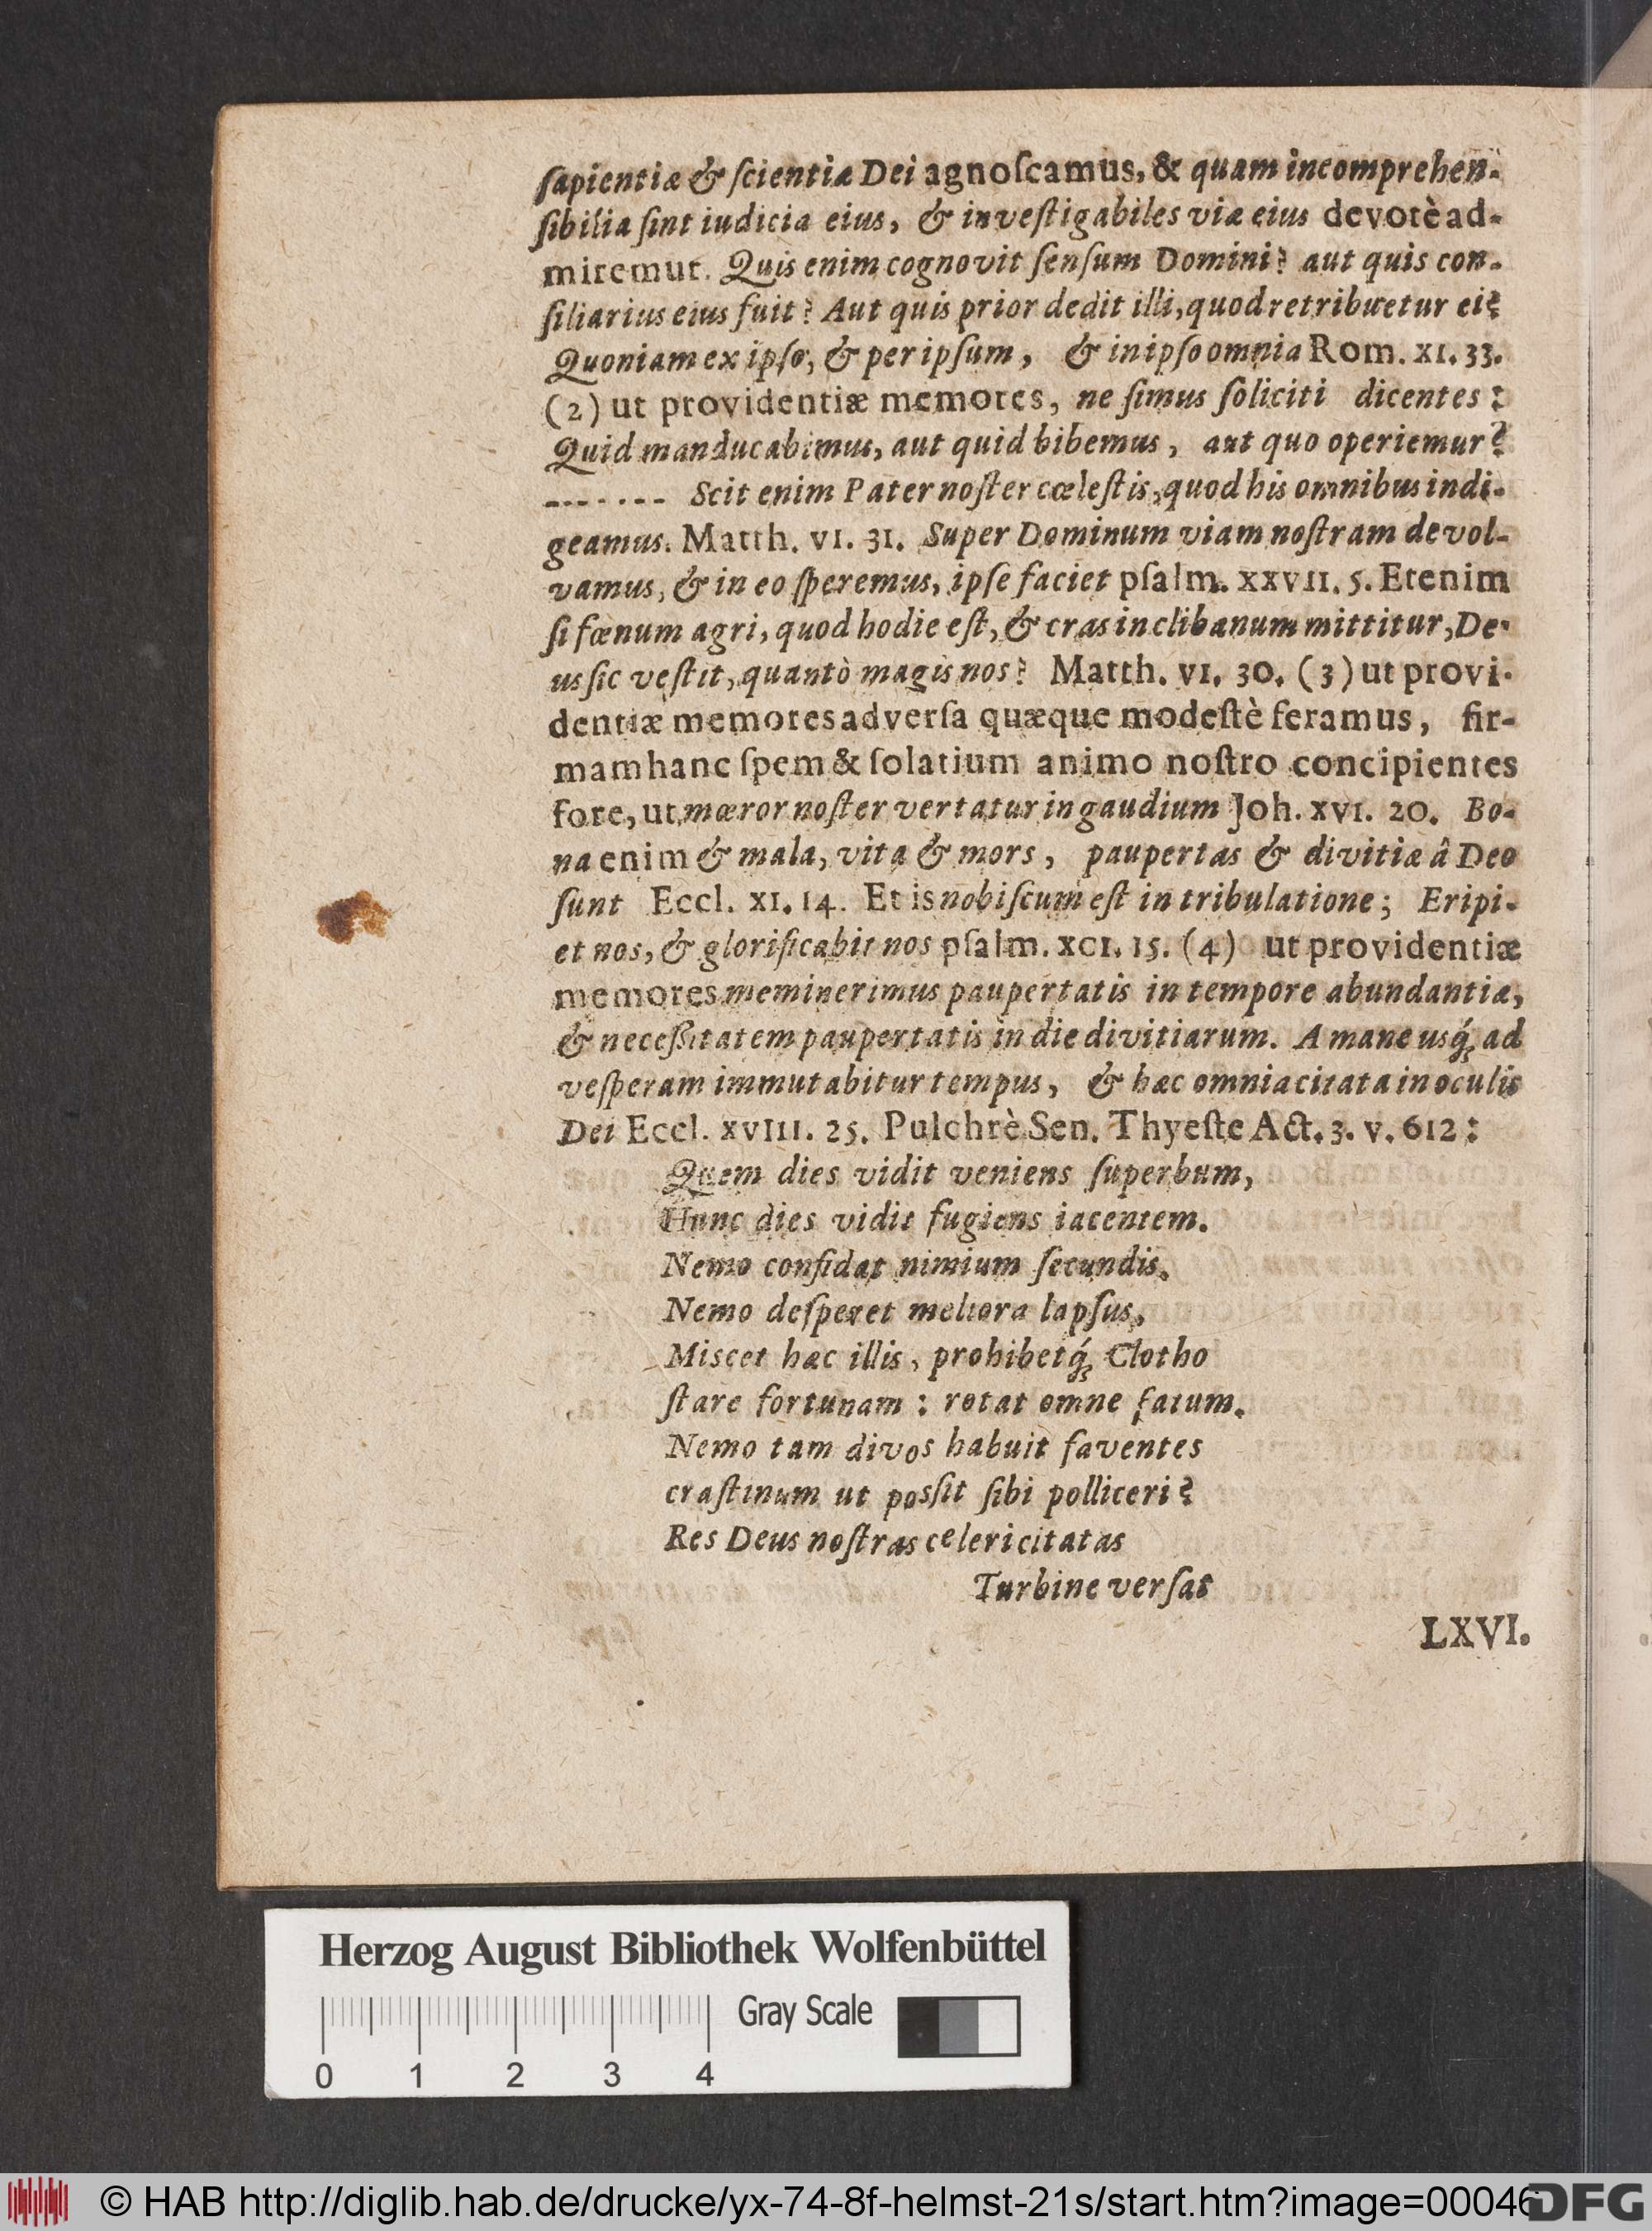 ſapientiæ & ſcientiæ Dei agnoſcamus, & quam incomprehen-
ſibilia ſint iudicia eius, & inveſtigabiles viæ eius devotè ad-
miremur. Quis enim cognovit ſenſum Domini? aut quis con-
ſiliarius eius fuit? Aut quis prior dedit illi, quod retribuetur ei?
Quoniam ex ipſo, & per ipſum, & in ipſo omnia Rom. XI. 33.
(2) ut providentiæ memores, ne ſimus ſoliciti dicentes:
Quid manducabimus, aut quid bibemus, aut quo operiemur?
------- Scit enim Pater noſter cœleſtis, quod his omnibus indi-
geamus. Matth. VI. 31. Super Dominum viam noſtram devol-
vamus, & in eo ſperemus, ipſe faciet pſalm. XXVII. 5. Etenim
ſi fœnum agri, quod hodie eſt, & cras in clibanum mittitur, De-
us ſic veſtit, quantò magis nos? Matth. VI. 30. (3) ut provi-
dentiæ memores adverſa quæque modeſtè feramus, fir-
mam hanc ſpem & ſolatium animo noſtro concipientes
fore, ut mœror noſter vertatur in gaudium Joh. XVI. 20. Bo-
na enim & mala, vita & mors, paupertas & divitiæ â Deo
ſunt Eccl. XI. 14. Et is nobiſcum eſt in tribulatione; Eripi-
et nos, & glorificabit nos pſalm. XCI. 15. (4) ut providentiæ
memores meminerimus paupertatis in tempore abundantiæ,
& neceſſitatem paupertatis in die divitiarum. A mane usq́; ad
veſperam immutabitur tempus, & hæc omnia citata in oculis
Dei Eccl. XVIII. 25. Pulchrè Sen. Thyeſte Act. 3. v. 612:
Quem dies vidit veniens ſuperbum,
Hunc dies vidit fugiens iacentem.
Nemo confidat nimium ſecundis,
Nemo deſperet meliora lapſus,
Miscet hæc illis, prohibetq́; Clotho
ſtare fortunam: rotat omne fatum.
Nemo tam divos habuit faventes
craſtinum ut posſit ſibi polliceri?
Res Deus noſtras celeri citatas
Turbine verſat
LXVI.
Herzog August Bibliothek Wolfenbüttel
Gray Scale
0 1 2 3 4
© HAB http://diglib.hab.de/drucke/yx-74-8f-helmst-21s/start.htm?image=00046
DFG